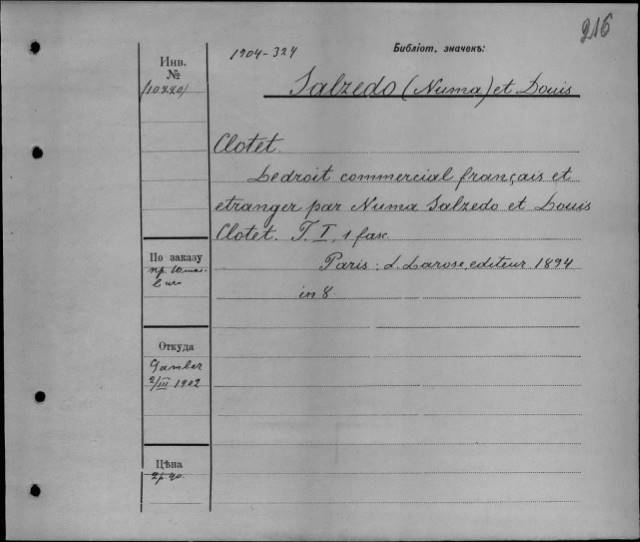 216
1904-324
Библіот. значекъ:
Инв.
№
(10220)
Salzedo (Numa) et Louis
Clotet.
Le droit commercial français et
etranger par Numa Salzedo et Louis
Clotet. T. I, 1 fax.
Paris: L. Larose, editeur 1894
in 8
По заказу
пр.
Откуда
Gamber
2/III 1902
Цѣна
2р 40.